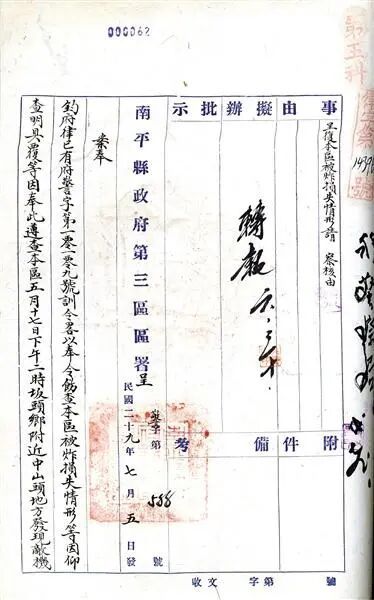 000062
第五科
事由
呈復本區被炸損失情形請 察核由
擬辦
轉報
批示
附件
備考
收文 字第 號
南平縣政府第三區區署呈
字第 588 號
民國二十九年七月五日發
案奉
鈞府律已有府警字第一零一零九號訓令畧以奉令飭查本區被炸損失情形等因仰
查明具覆等因奉此遵查本區五月十七日下午二時坂頭鄉附近中山頭地方發現敵機